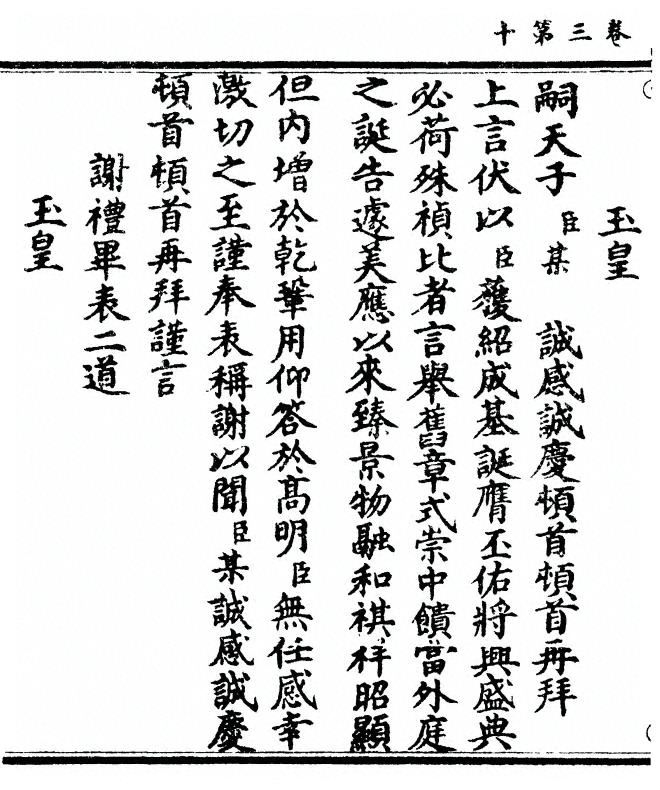 卷三第十
玉皇
嗣天子臣某 誠感誠慶頓首頓首再拜
上言伏以臣獲紹成基誕膺丕佑將興盛典
必荷殊禎比者言舉舊章式崇中饋當外庭
之誕告遽美應以來臻景物融和祺祥昭顯
但內增於乾鞏用仰答於高明臣無任感幸
激切之至謹奉表稱謝以聞臣某誠感誠慶
頓首頓首再拜謹言
謝禮畢表二道
玉皇